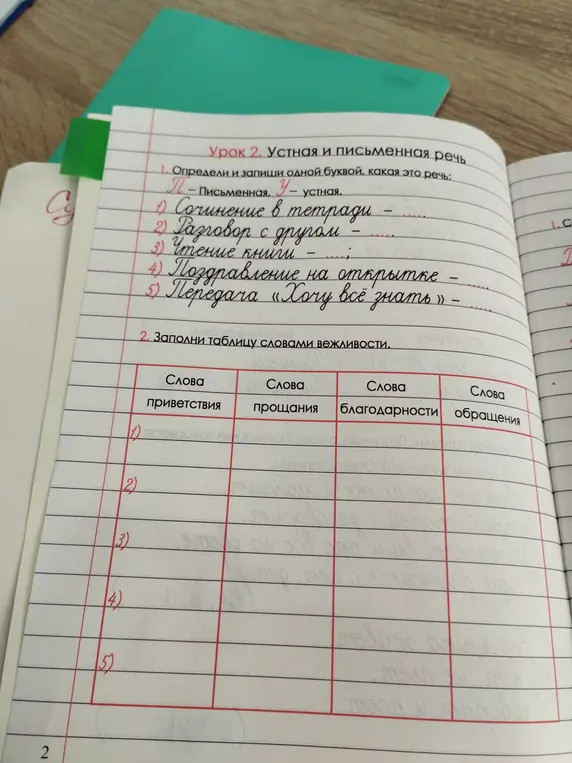 Урок 2. Устная и письменная речь
1. Определи и запиши одной буквой, какая это речь:
П – Письменная, У – устная.
1) Сочинение в тетради – .....
2) Разговор с другом – .....
3) Чтение книги – ....;
4) Поздравление на открытке – .....
5) Передача «Хочу всё знать» – ....
2. Заполни таблицу словами вежливости.
Слова приветствия
Слова прощания
Слова благодарности
Слова обращения
1)
2)
3)
4)
5)
2